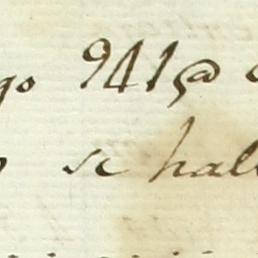 go 941@
se hall